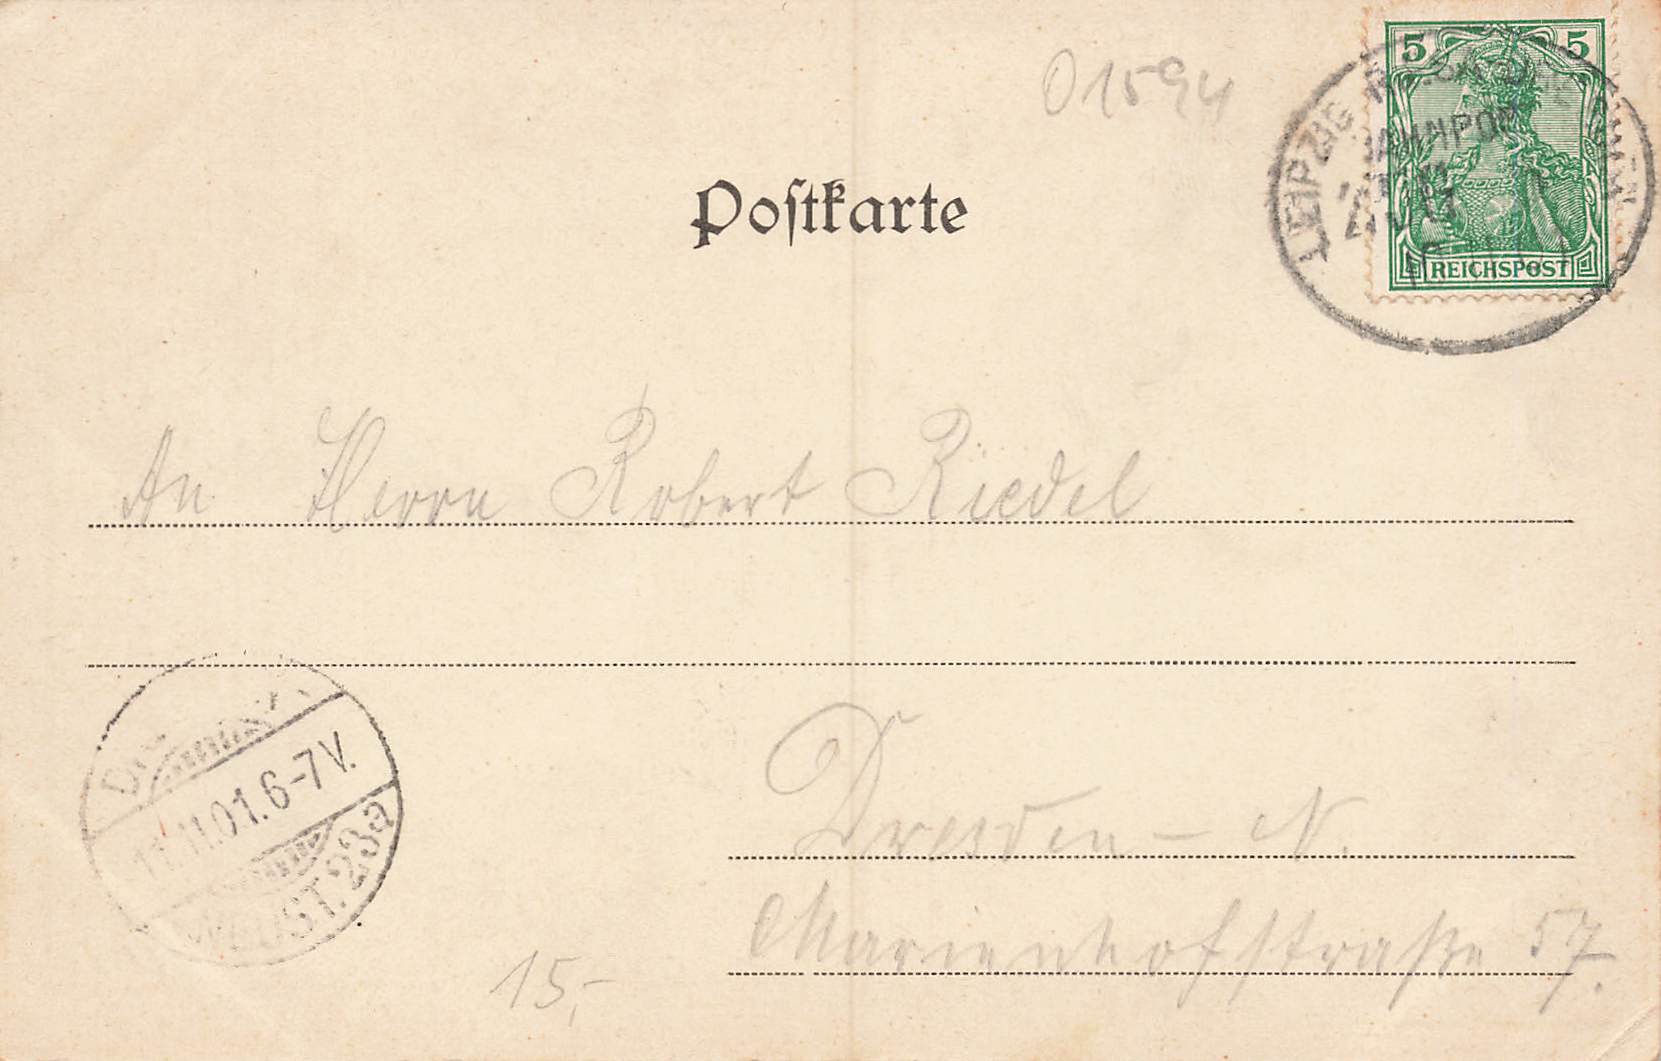 01594
5 5
LEIPZIG
BAHNPOST
REICHSPOST
Postkarte
An Herrn Robert Riedel
Dresden - N.
Marienhofstraße 57.
11.11.01.6-7V.
NEUST. 23a
15,-